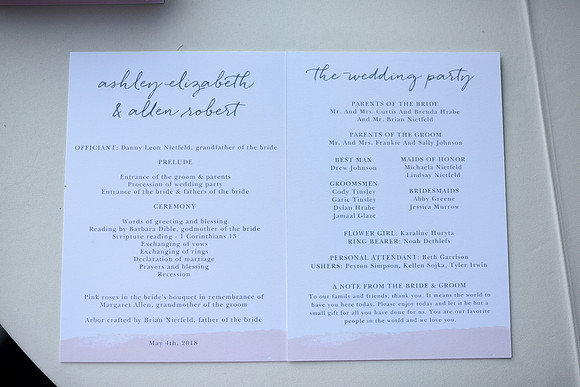 ashley elizabeth
& allen robert
OFFICIANT: Danny Leon Nietfeld, grandfather of the bride
PRELUDE
Entrance of the groom & parents
Procession of wedding party
Entrance of the bride & fathers of the bride
CEREMONY
Words of greeting and blessing
Reading by Barbara Dible, godmother of the bride
Scripture reading - 1 Corinthians 13
Exchanging of vows
Exchanging of rings
Declaration of marriage
Prayers and blessing
Recession
Pink roses in the bride's bouquet in remembrance of
Margaret Allen, grandmother of the groom
Arbor crafted by Brian Nietfeld, father of the bride
May 4th, 2018
the wedding party
PARENTS OF THE BRIDE
Mr. And Mrs. Curtis And Brenda Hrabe
And Mr. Brian Nietfeld
PARENTS OF THE GROOM
Mr. And Mrs. Frankie And Sally Johnson
BEST MAN
Drew Johnson
GROOMSMEN
Cody Tinsley
Garic Tinsley
Dylan Hrabe
Jamaal Glaze
MAIDS OF HONOR
Michaela Nietfeld
Lindsay Nietfeld
BRIDESMAIDS
Abby Greene
Jessica Murrow
FLOWER GIRL: Karaline Huryta
RING BEARER: Noah Dethlefs
PERSONAL ATTENDANT: Beth Garrison
USHERS: Peyton Simpson, Kellen Sojka, Tyler Irwin
A NOTE FROM THE BRIDE & GROOM
To our family and friends, thank you. It means the world to
have you here today. Please enjoy today and let it be but a
small gift for all you have done for us. You are our favorite
people in the world and we love you.